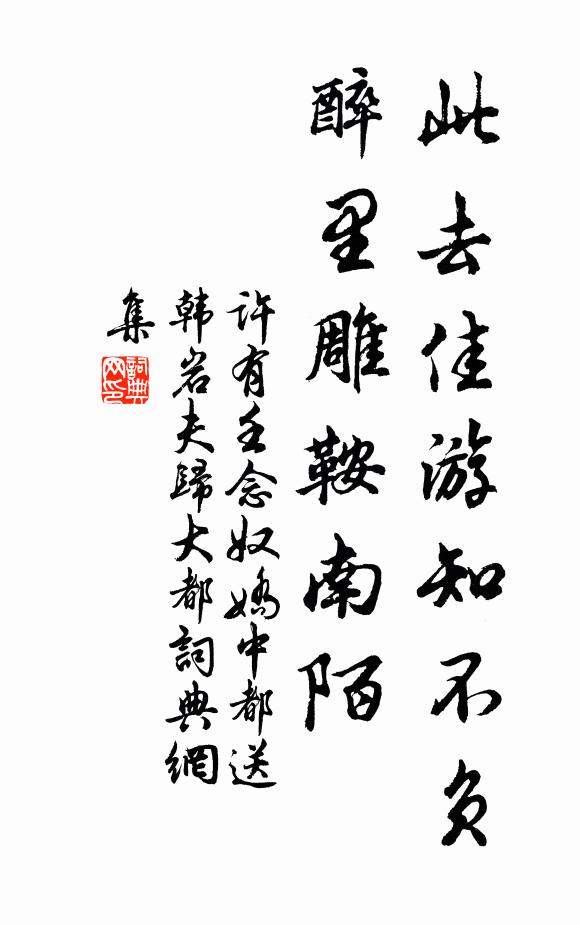 此去佳游知不負
醉里雕鞍南陌
許有壬念奴嬌中都送
韩岩夫歸大都詞典網
集
詞典
网印